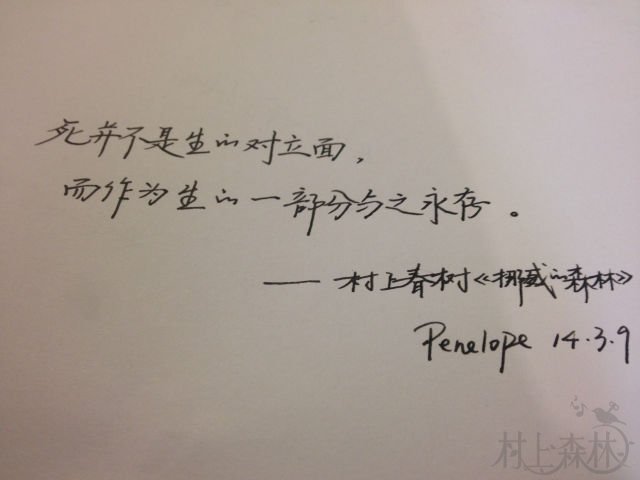 死并不是生的对立面，
而作为生的一部分与之永存。
——村上春树《挪威的森林》
Penelope 14.3.9
村上森林